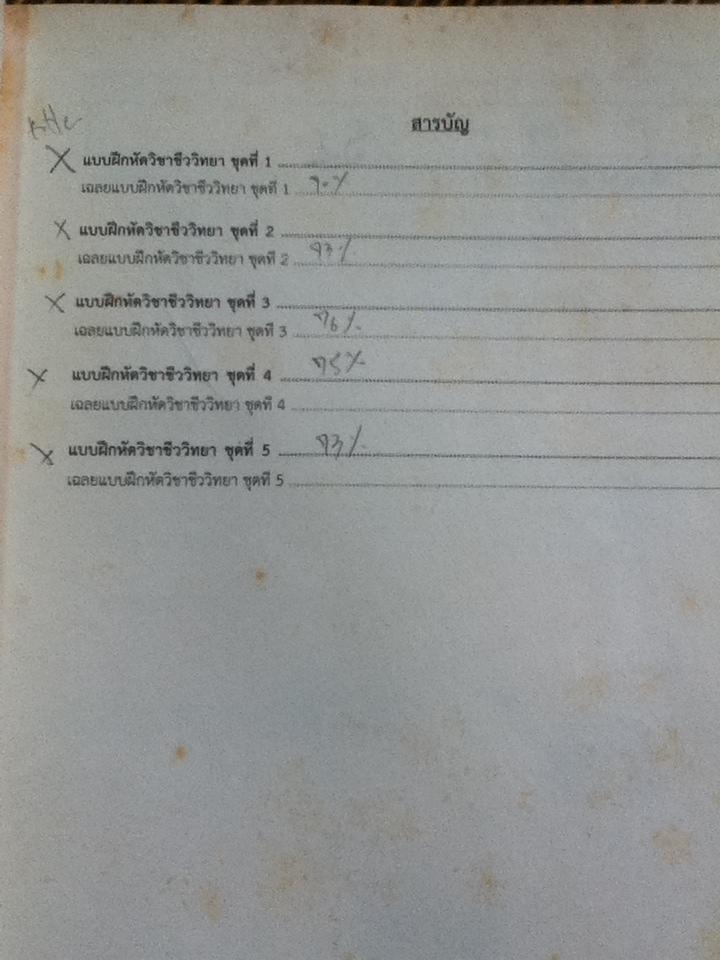 สารบัญ
X แบบฝึกหัดวิชาชีววิทยา ชุดที่ 1
เฉลยแบบฝึกหัดวิชาชีววิทยา ชุดที่ 1
X แบบฝึกหัดวิชาชีววิทยา ชุดที่ 2
เฉลยแบบฝึกหัดวิชาชีววิทยา ชุดที่ 2
X แบบฝึกหัดวิชาชีววิทยา ชุดที่ 3
เฉลยแบบฝึกหัดวิชาชีววิทยา ชุดที่ 3
X แบบฝึกหัดวิชาชีววิทยา ชุดที่ 4
เฉลยแบบฝึกหัดวิชาชีววิทยา ชุดที่ 4
X แบบฝึกหัดวิชาชีววิทยา ชุดที่ 5
เฉลยแบบฝึกหัดวิชาชีววิทยา ชุดที่ 5